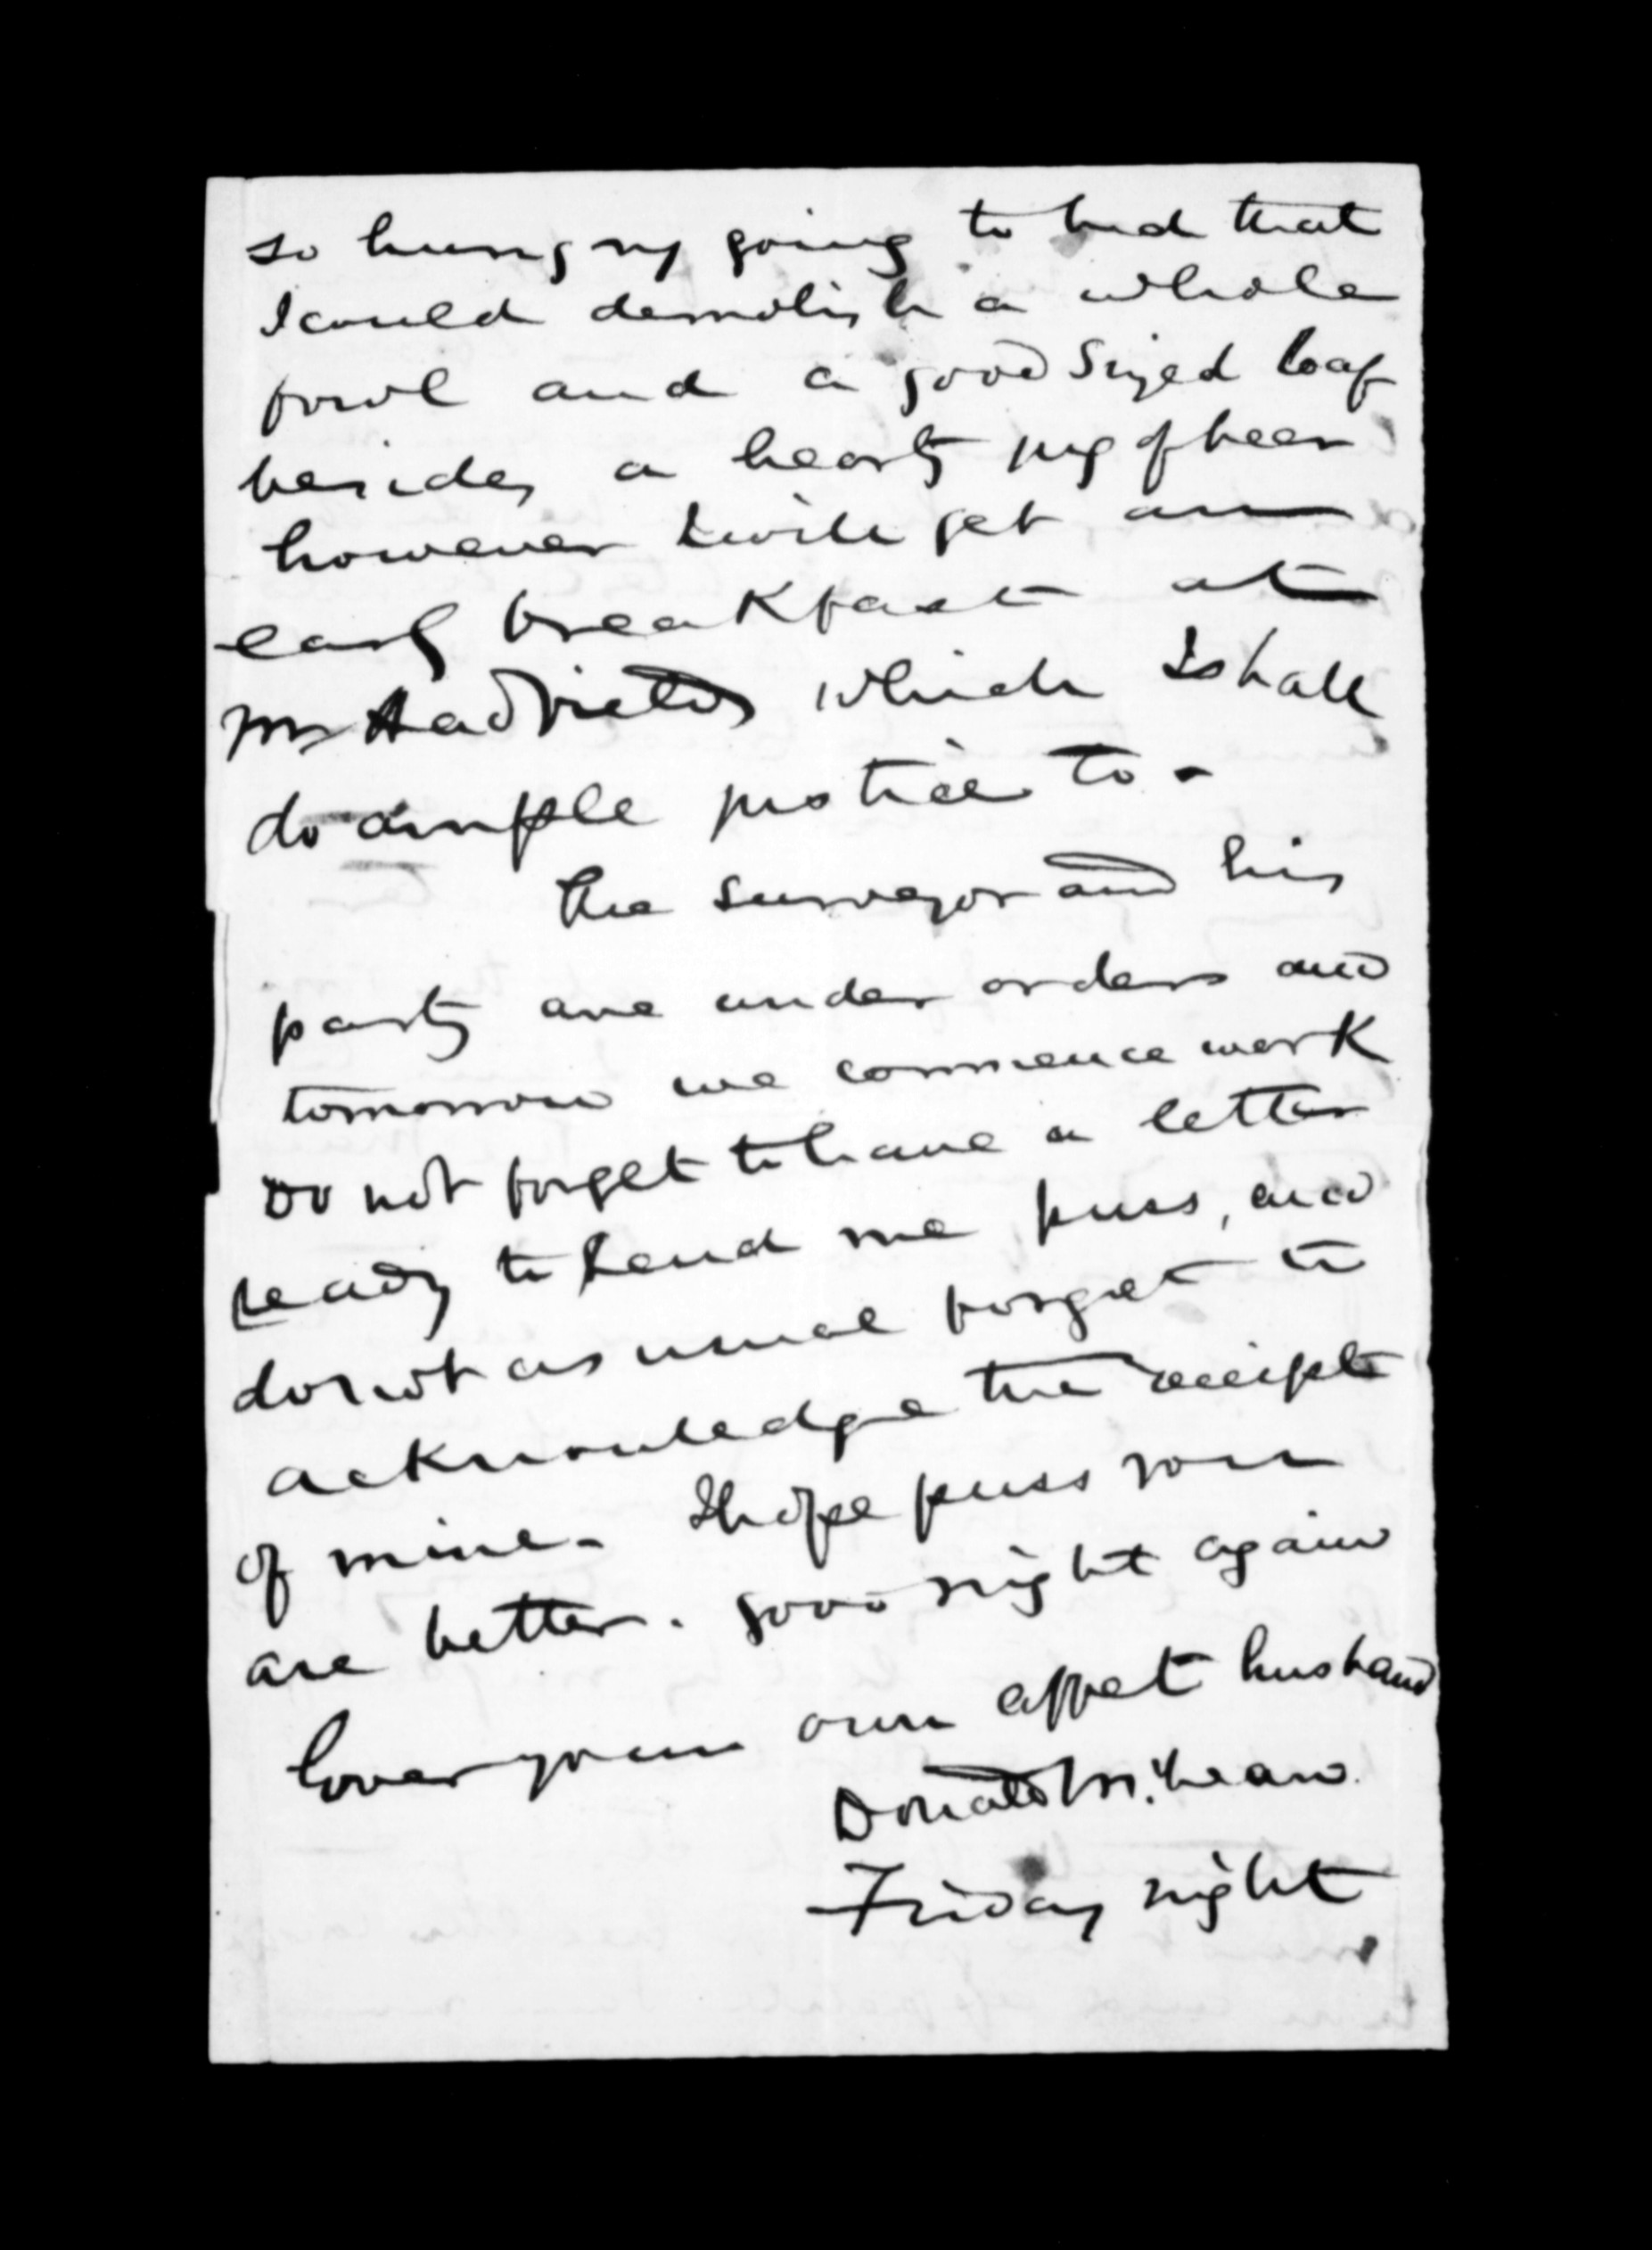 so hungry going to bed that
I could demolish a whole
fowl and a good sized loaf
besides a hearty jug of beer
however I will get an
early breakfast at
Mr Hadfields which I shall
do ample justice to -
The surveyor and his
party are under orders and
tomorrow we commence work
Do not forget to have a letter
ready to send me puss, and
do not as usual forget to
acknowledge the receipt
of mine - I hope puss you
are better. good night again
lover your own affet husband
Donald McLean
Friday night